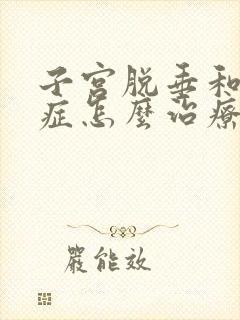 子宫脱垂和
症怎麼治療
嚴能效